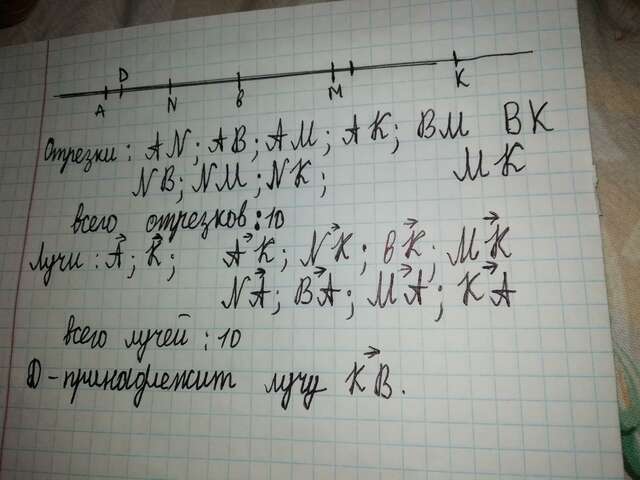 D
A N B M K
Отрезки: AN; AB; AM; AK; BM BK
NB; NM; NK; MK
всего отрезков: 10
Лучи: A⃗; K⃗; AK⃗; NK⃗; BK⃗; MK⃗
NA⃗; BA⃗; MA⃗; KA⃗
всего лучей: 10
D - принадлежит лучу KB⃗.